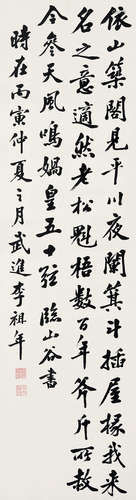 依山築閣見平川夜闌箕斗插屋椽我來
名之意適然老松魁梧數百年斧斤所赦
今參天風鳴媧皇五十弦臨山谷書
時在丙寅仲夏之月武進李祖年